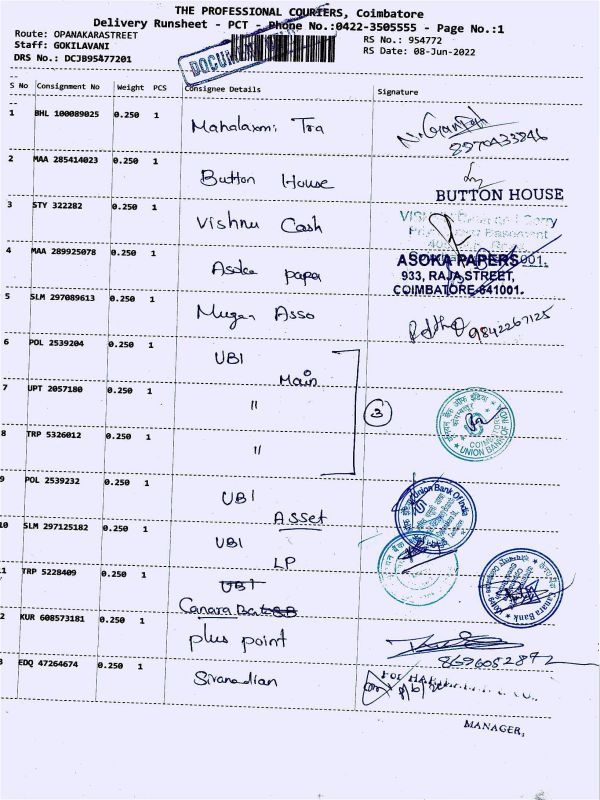 THE PROFESSIONAL COURIERS, Coimbatore
Delivery Runsheet - PCT - Phone No.:0422-3505555 - Page No.:1
Route: OPANAKARASTREET
RS No.: 954772
Staff: GOKILAVANI
RS Date: 08-Jun-2022
DRS No.: DCJB95477201
DOCUMENT
S No Consignment No Weight PCS Consignee Details Signature
1 BHL 100089025 0.250 1 Mahalaxmi Tra
8970433846
2 MAA 285414023 0.250 1 Button House
BUTTON HOUSE
3 STY 322282 0.250 1 Vishnu Cash
4 MAA 289925078 0.250 1 Asoka papa
ASOKA PAPERS
933, RAJA STREET,
COIMBATORE-641001.
5 SLM 297089613 0.250 1 Mugan Asso
9842267125
6 POL 2539204 0.250 1 UBI
Main
7 UPT 2057180 0.250 1 "
3
8 TRP 5326012 0.250 1 "
UNION BANK OF INDIA
COIMBATORE
9 POL 2539232 0.250 1 UBI
Asset
Union Bank Of India
10 SLM 297125182 0.250 1 UBI
LP
11 TRP 5228409 0.250 1 UBI
Canara Bank
Canara Bank
12 KUR 608573181 0.250 1 plus point
8696052872
13 EDQ 47264674 0.250 1 Sivanadian
For
MANAGER.